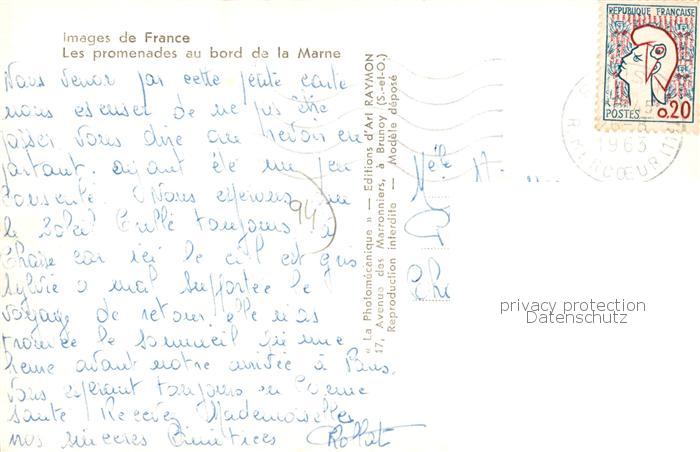 Images de France
Les promenades au bord de la Marne
Nous venons par cette petite carte
nous excuser de ne pas être
passer vous dire au revoir en
partant. ayant été un peu
Nous espérons que
le Soleil brille toujours à
car ici le ciel est gris
Sylvie a mal supportée le
voyage de retour elle n'as
trouvée le sommeil qu'une
heure avant notre arrivée à Paris.
Vous espérant toujours en bonne
santé Recevez Mesdemoiselles
nos sincères amitiées
94
« La Photomécanique » — Editions d'Art RAYMON
17, Avenue des Marronniers, à Brunoy (S.-et-O.)
Reproduction interdite — Modèle déposé
REPUBLIQUE FRANÇAISE
POSTES 0,20
1963
R. MERCŒUR (11
privacy protection
Datenschutz